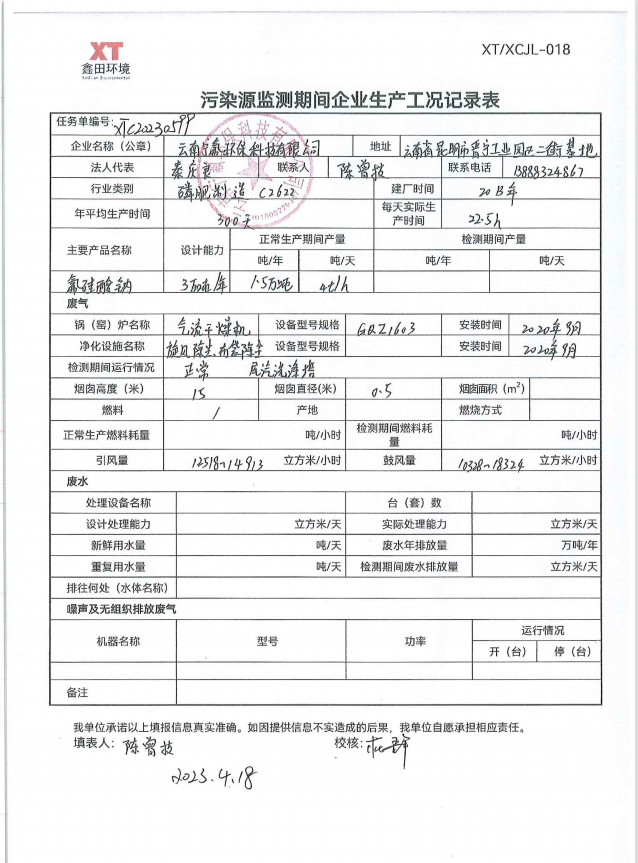 XT
XT/XCJL-018
鑫田环境
污染源监测期间企业生产工况记录表
任务单编号: XTC20230599
企业名称（公章） 环保科技有限公司 地址 云南省昆明市晋宁工业园区二街基地
法人代表 联系人 陈曾技 联系电话 13888324867
行业类别 磷肥制造 C2622 建厂时间 2013年
年平均生产时间 300天 每天实际生产时间 22.5h
主要产品名称 设计能力 正常生产期间产量 检测期间产量
吨/年 吨/天 吨/年 吨/天
氟硅酸钠 3万吨/年 1.5万吨 4t/h
废气
锅（窑）炉名称 气流干燥机 设备型号规格 GRZ1603 安装时间 2020年9月
净化设施名称 旋风除尘、布袋除尘 设备型号规格 安装时间 2020年9月
检测期间运行情况 正常 尾汽洗涤塔
烟囱高度（米） 15 烟囱直径(米) 0.5 烟囱面积（m²）
燃料 / 产地 燃烧方式
正常生产燃料耗量 吨/小时 检测期间燃料耗量 吨/小时
引风量 12518~14913 立方米/小时 鼓风量 10328~18324 立方米/小时
废水
处理设备名称 台（套）数
设计处理能力 立方米/天 实际处理能力 立方米/天
新鲜用水量 吨/天 废水年排放量 万吨/年
重复用水量 吨/天 检测期间废水排放量 立方米/天
排往何处（水体名称）
噪声及无组织排放废气
机器名称 型号 功率 运行情况
开（台） 停（台）
备注
我单位承诺以上填报信息真实准确。如因提供信息不实造成的后果，我单位自愿承担相应责任。
填表人: 陈曾技 校核:
2023.4.18